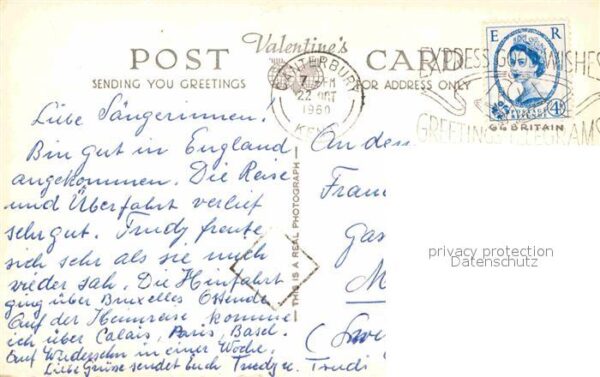 Valentine's
POST CARD
SENDING YOU GREETINGS
FOR ADDRESS ONLY
CANTERBURY
7 PM
22 OCT
1960
KENT
EXPRESS GOOD WISHES
GREETINGS TELEGRAMS
E R
POSTAGE
REVENUE
4D
GG BRITAIN
Liebe Sängerinnen!
Bin gut in England
angekommen. Die Reise
und Überfahrt verlief
sehr gut. Trudy freute
sich sehr als sie mich
wieder sah. Die Hinfahrt
ging über Bruxelles Ostende
Auf der Heimreise komme
ich über Calais, Paris, Basel.
Auf Wiedersehn in einer Woche.
Liebe Grüsse sendet Euch Trudy u. Trudi
THIS IS A REAL PHOTOGRAPH
An den
Frau
Gas
M
(Sw
privacy protection
Datenschutz